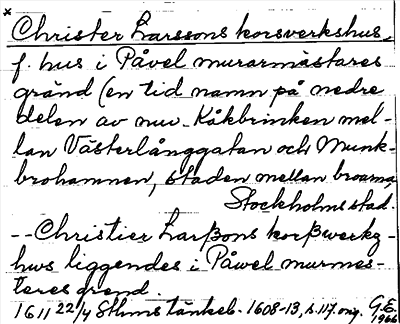 Christer Larssons korsverkshus,
f. hus i Påvel murarmästares
gränd (en tid namn på nedre
delen av nuv. Kåkbrinken mel-
lan Västerlånggatan och Munk-
brohamnen, staden mellan broarna,
Stockholms stad.
--Christier Larßons korßwerkz-
hws liggendes i Påwel murmes-
teres grend.
1611 22/4 Sthms tänkeb. 1608-13, s. 117. orig. G.E.
1966